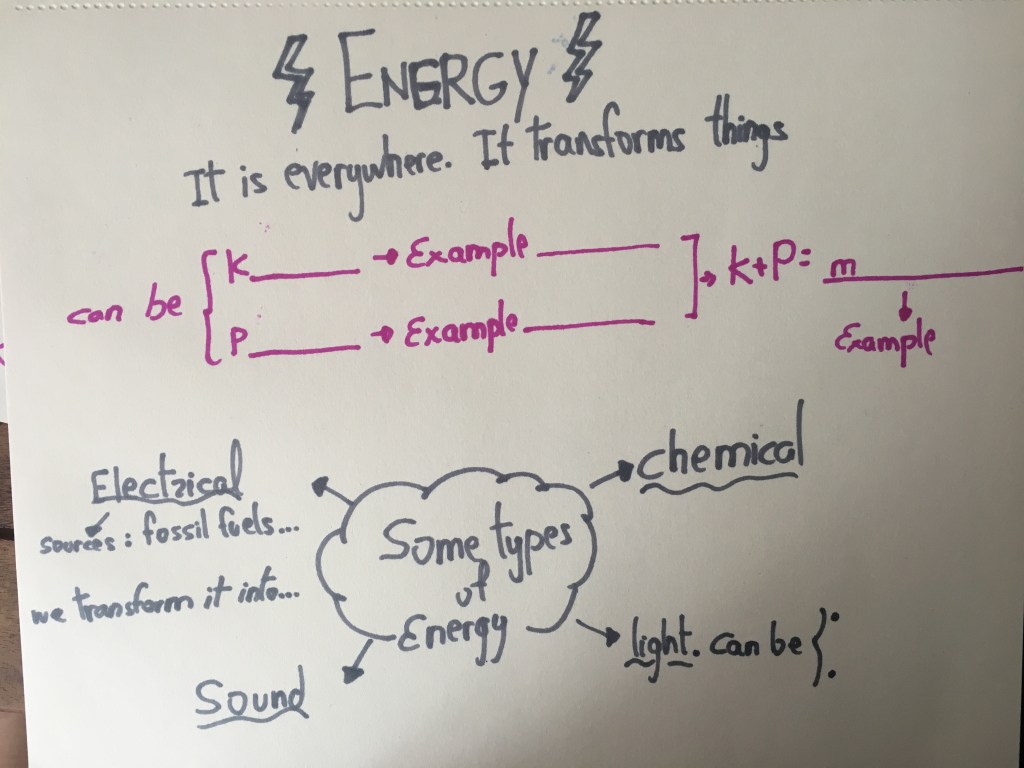 ENERGY
It is everywhere. It transforms things
can be
K______ → Example ______
P______ → Example ______
→ K+P= m______
Example
Electrical
sources: fossil fuels...
we transform it into...
Sound
Some types
of
Energy
chemical
light. can be